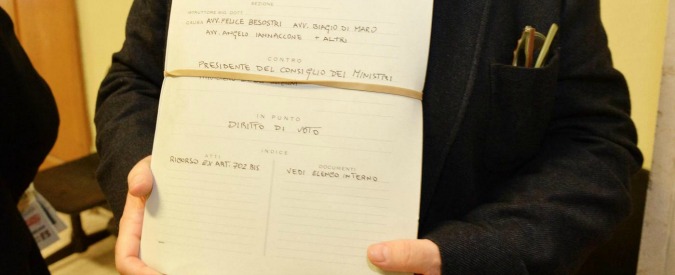 SEZIONE
ISTRUTTORE SIG. DOTT.
CAUSA AVV. FELICE BESOSTRI AVV. BIAGIO DI MARO
AVV. ANGELO IANNACCONE + ALTRI
CONTRO
PRESIDENTE DEL CONSIGLIO DEI MINISTRI
IN PUNTO
DIRITTO DI VOTO
INDICE
ATTI
DOCUMENTI
RICORSO EX ART. 702 BIS
VEDI ELENCO INTERNO